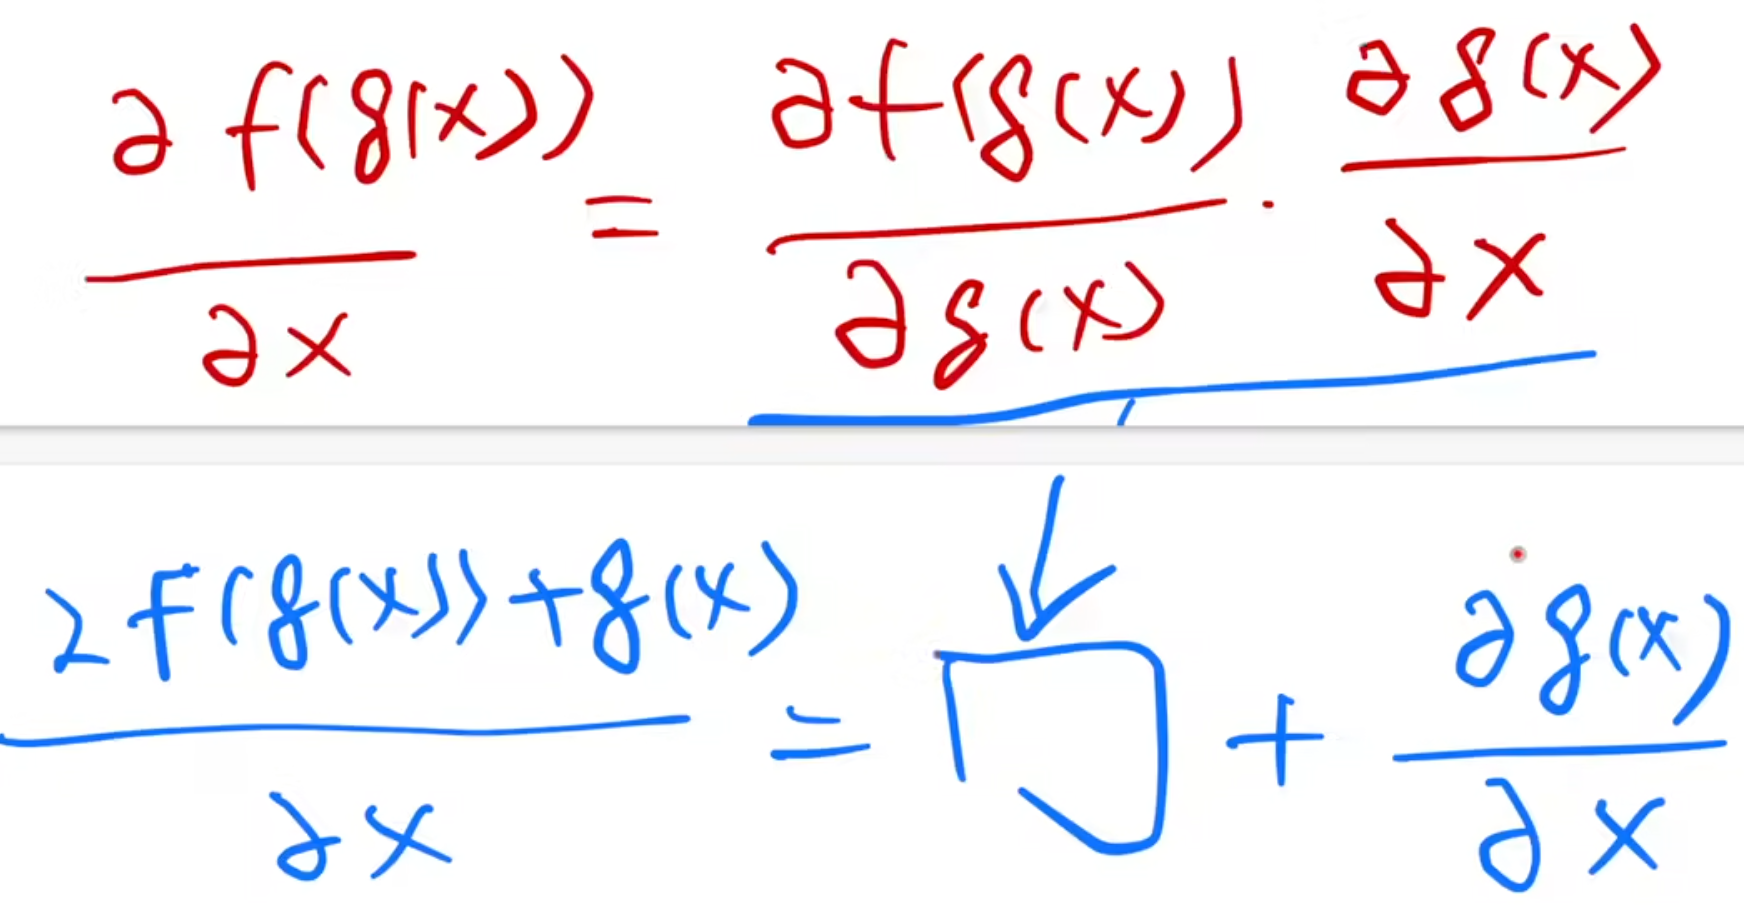 ∂f(g(x))/∂x = ∂f(g(x))/∂g(x) · ∂g(x)/∂x
2f(g(x))+g(x)/∂x = □ + ∂g(x)/∂x